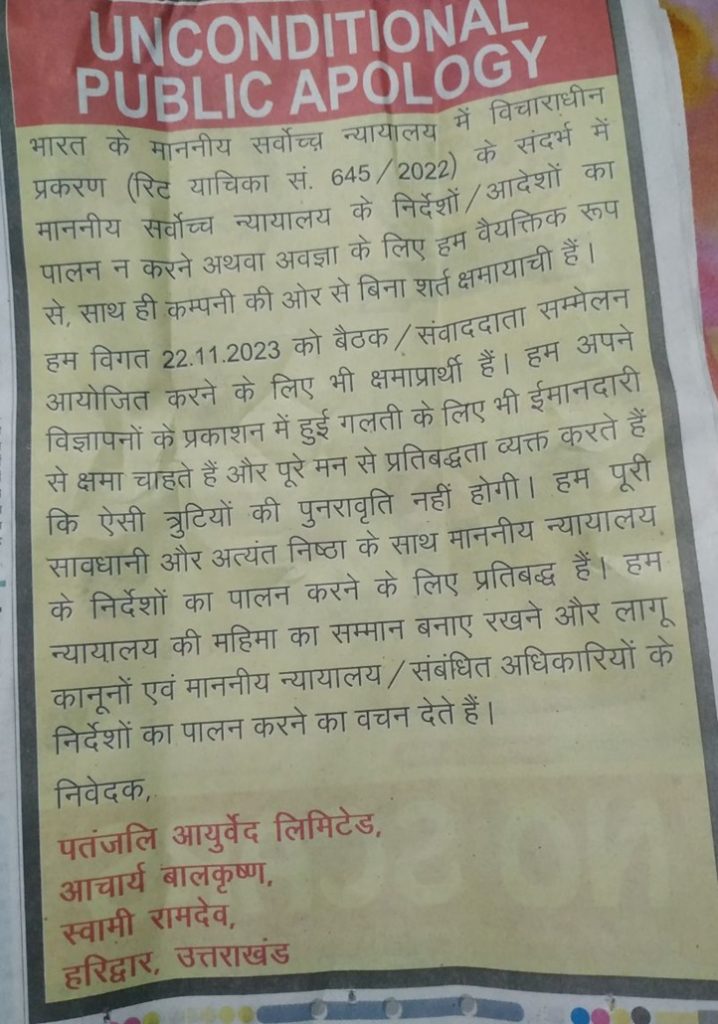 UNCONDITIONAL
PUBLIC APOLOGY
भारत के माननीय सर्वोच्च न्यायालय में विचाराधीन
प्रकरण (रिट याचिका सं. 645/2022) के संदर्भ में
माननीय सर्वोच्च न्यायालय के निर्देशों/आदेशों का
पालन न करने अथवा अवज्ञा के लिए हम वैयक्तिक रूप
से, साथ ही कम्पनी की ओर से बिना शर्त क्षमायाची हैं।
हम विगत 22.11.2023 को बैठक/संवाददाता सम्मेलन
आयोजित करने के लिए भी क्षमाप्रार्थी हैं। हम अपने
विज्ञापनों के प्रकाशन में हुई गलती के लिए भी ईमानदारी
से क्षमा चाहते हैं और पूरे मन से प्रतिबद्धता व्यक्त करते हैं
कि ऐसी त्रुटियों की पुनरावृति नहीं होगी। हम पूरी
सावधानी और अत्यंत निष्ठा के साथ माननीय न्यायालय
के निर्देशों का पालन करने के लिए प्रतिबद्ध हैं। हम
न्यायालय की महिमा का सम्मान बनाए रखने और लागू
कानूनों एवं माननीय न्यायालय/संबंधित अधिकारियों के
निर्देशों का पालन करने का वचन देते हैं।
निवेदक,
पतंजलि आयुर्वेद लिमिटेड,
आचार्य बालकृष्ण,
स्वामी रामदेव,
हरिद्वार, उत्तराखंड